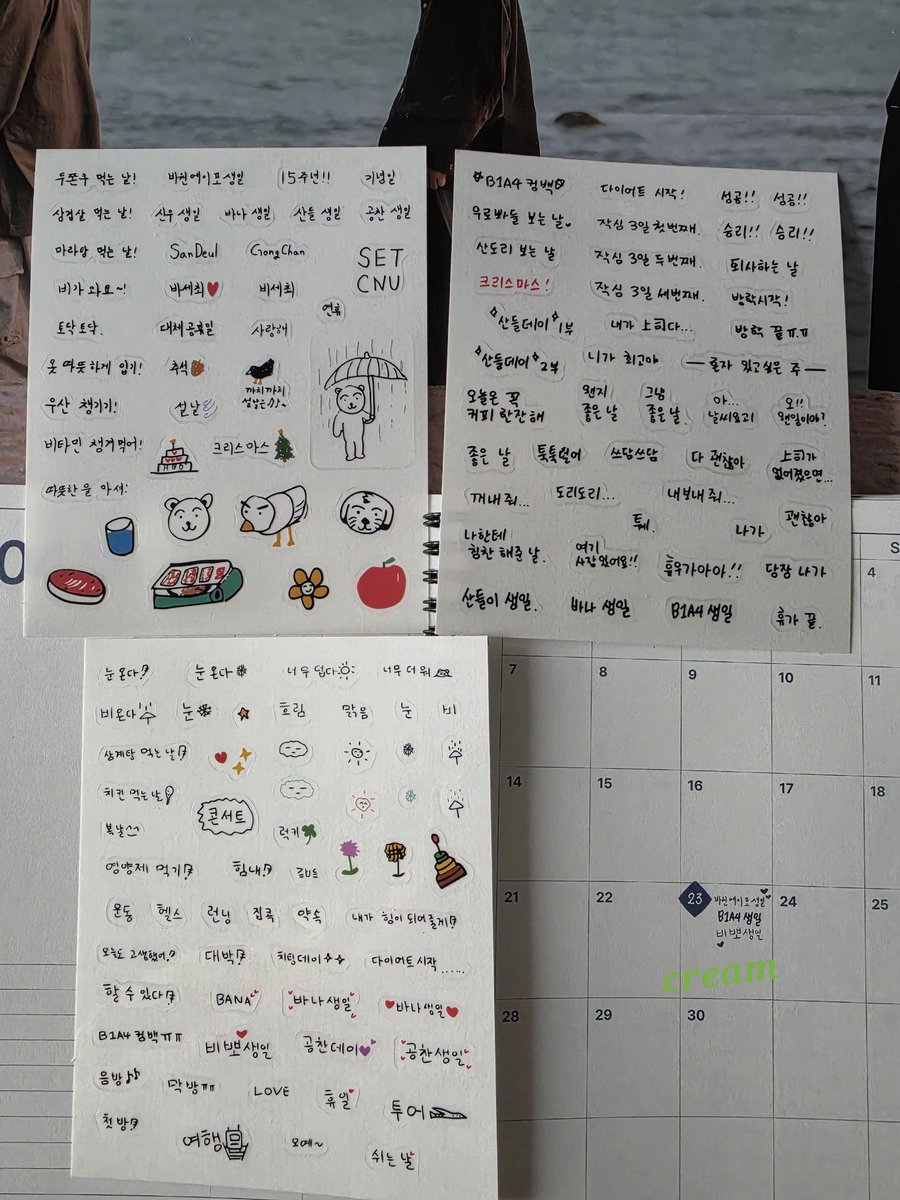 두쫀쿠 먹는 날! 바진에이포생일 15주년!! 기념일
삼겹살 먹는 날! 신우 생일 바나 생일 산들 생일 공찬 생일
마라탕 먹는 날! SanDeul GongChan SET
비가 와요~! 바세최 비세최 CNU
연휴
토닥토닥. 대체공휴일 사랑해
옷 따뜻하게 입기! 추석
까치까치
설날은
우산 챙기기! 설날
비타민 챙겨먹어! 크리스마스
따뜻한 물 마셔!
B1A4 컴백 다이어트 시작! 성공!! 성공!!
우로빠들 보는 날 작심 3일 첫번째. 승리!! 승리!!
산도리 보는 날 작심 3일 두번째. 퇴사하는 날
크리스마스! 작심 3일 세번째. 방학시작!
산들데이 1부 내가 상히다... 방학 끝 ㅠㅠ
산들데이 2부 니가 최고야 혼자 있고싶은 주
오늘은 꼭 왠지 그냥 아... 오!!
커피 한잔해 좋은 날 좋은 날 날씨요괴 웬일이야?
좋은 날 툭툭털어 쓰담쓰담 다 괜찮아 상히가
없어졌으면...
꺼내줘... 도리도리... 내보내줘...
퉤. 나가 괜찮아
나한테 여기
칭찬 해준 날. 사람있어요!! 휴우가아아!! 당장 나가
산들이 생일. 바나 생일 B1A4 생일 휴가 끝.
눈온다 눈온다 너무 덥다 너무 더워
비온다 눈 흐림 맑음 눈 비
삼계탕 먹는 날
치킨 먹는 날
콘서트
복날 럭키
영양제 먹기! 힘내! 로또
운동 헬스 런닝 집콕 약속 내가 힘이 되어줄게!
오늘도 고생했어! 대박 치팅데이 다이어트시작......
할 수 있다! BANA 바나생일 바나생일
B1A4 컴백ㅠㅠ 비뽀생일 공찬데이 공찬생일
음방♪♪ 막방ㅠㅠ LOVE 휴일 투어
첫방! 여행 오예~ 쉬는 날
S
4
7 8 9 10 11
14 15 16 17 18
21 22 23 24 25
바진에이포생일
B1A4 생일
비뽀생일
cream
28 29 30